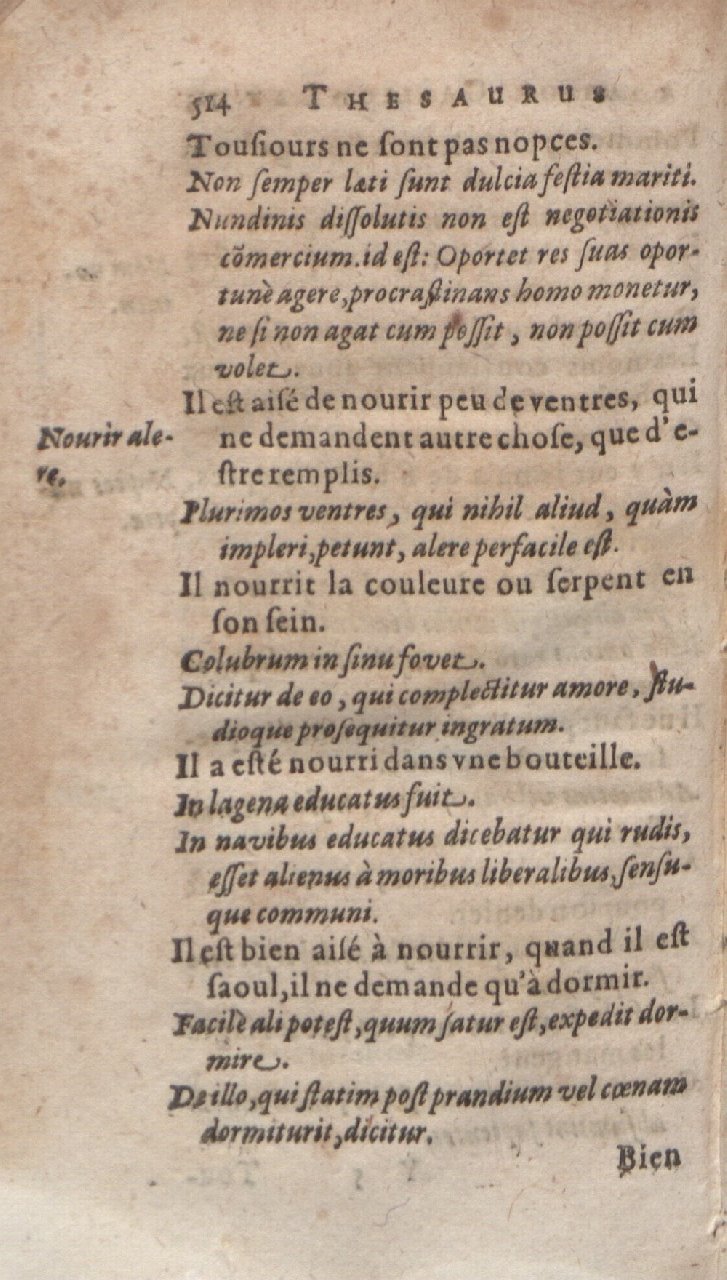 514 THESAURUS
Tousiours ne ſont pas nopces.
Non ſemper læti ſunt dulcia feſtia mariti.
Nundinis diſſolutis non eſt negotiationis
cõmercium. id eſt: Oportet res ſuas opor-
tunè agere, procraſtinans homo monetur,
ne ſi non agat cum poſſit, non poſſit cum
volet.
Il eſt aiſé de nourir peu de ventres, qui
Nourir ale-
re.
ne demandent autre choſe, que d'e-
ſtre remplis.
Plurimos ventres, qui nihil aliud, quàm
impleri, petunt, alere perfacile eſt.
Il nourrit la couleure ou ſerpent en
ſon ſein.
Colubrum in ſinu fovet.
Dicitur de eo, qui complectitur amore, ſtu-
dioque proſequitur ingratum.
Il a eſté nourri dans vne bouteille.
In lagena educatus fuit.
In navibus educatus dicebatur qui rudis,
eſſet alienus à moribus liberalibus, ſenſu-
que communi.
Il eſt bien aiſé à nourrir, quand il eſt
ſaoul, il ne demande qu'à dormir.
Facilè ali poteſt, quum ſatur eſt, expedit dor-
mire.
De illo, qui ſtatim poſt prandium vel cœnam
dormiturit, dicitur.
Bien